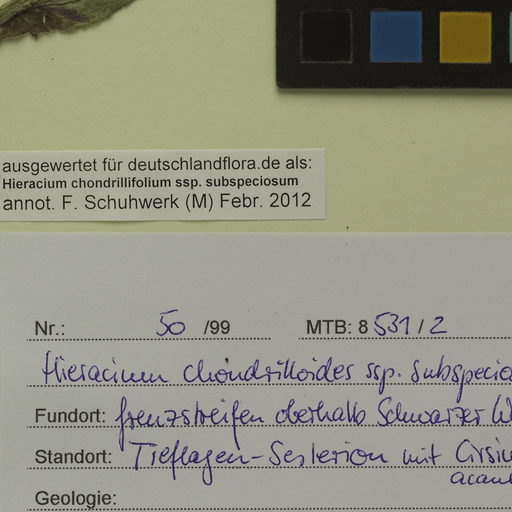 ausgewertet für deutschlandflora.de als:
Hieracium chondrillifolium ssp. subspeciosum
annot. F. Schuhwerk (M) Febr. 2012
Nr.: 50 /99 MTB: 8 531 / 2
Hieracium chondrilloides ssp. subspecio
Fundort: Grenzstreifen oberhalb Schwarzer W
Standort: Tieflagen-Seslerion mit Cirsiu
acaul
Geologie: